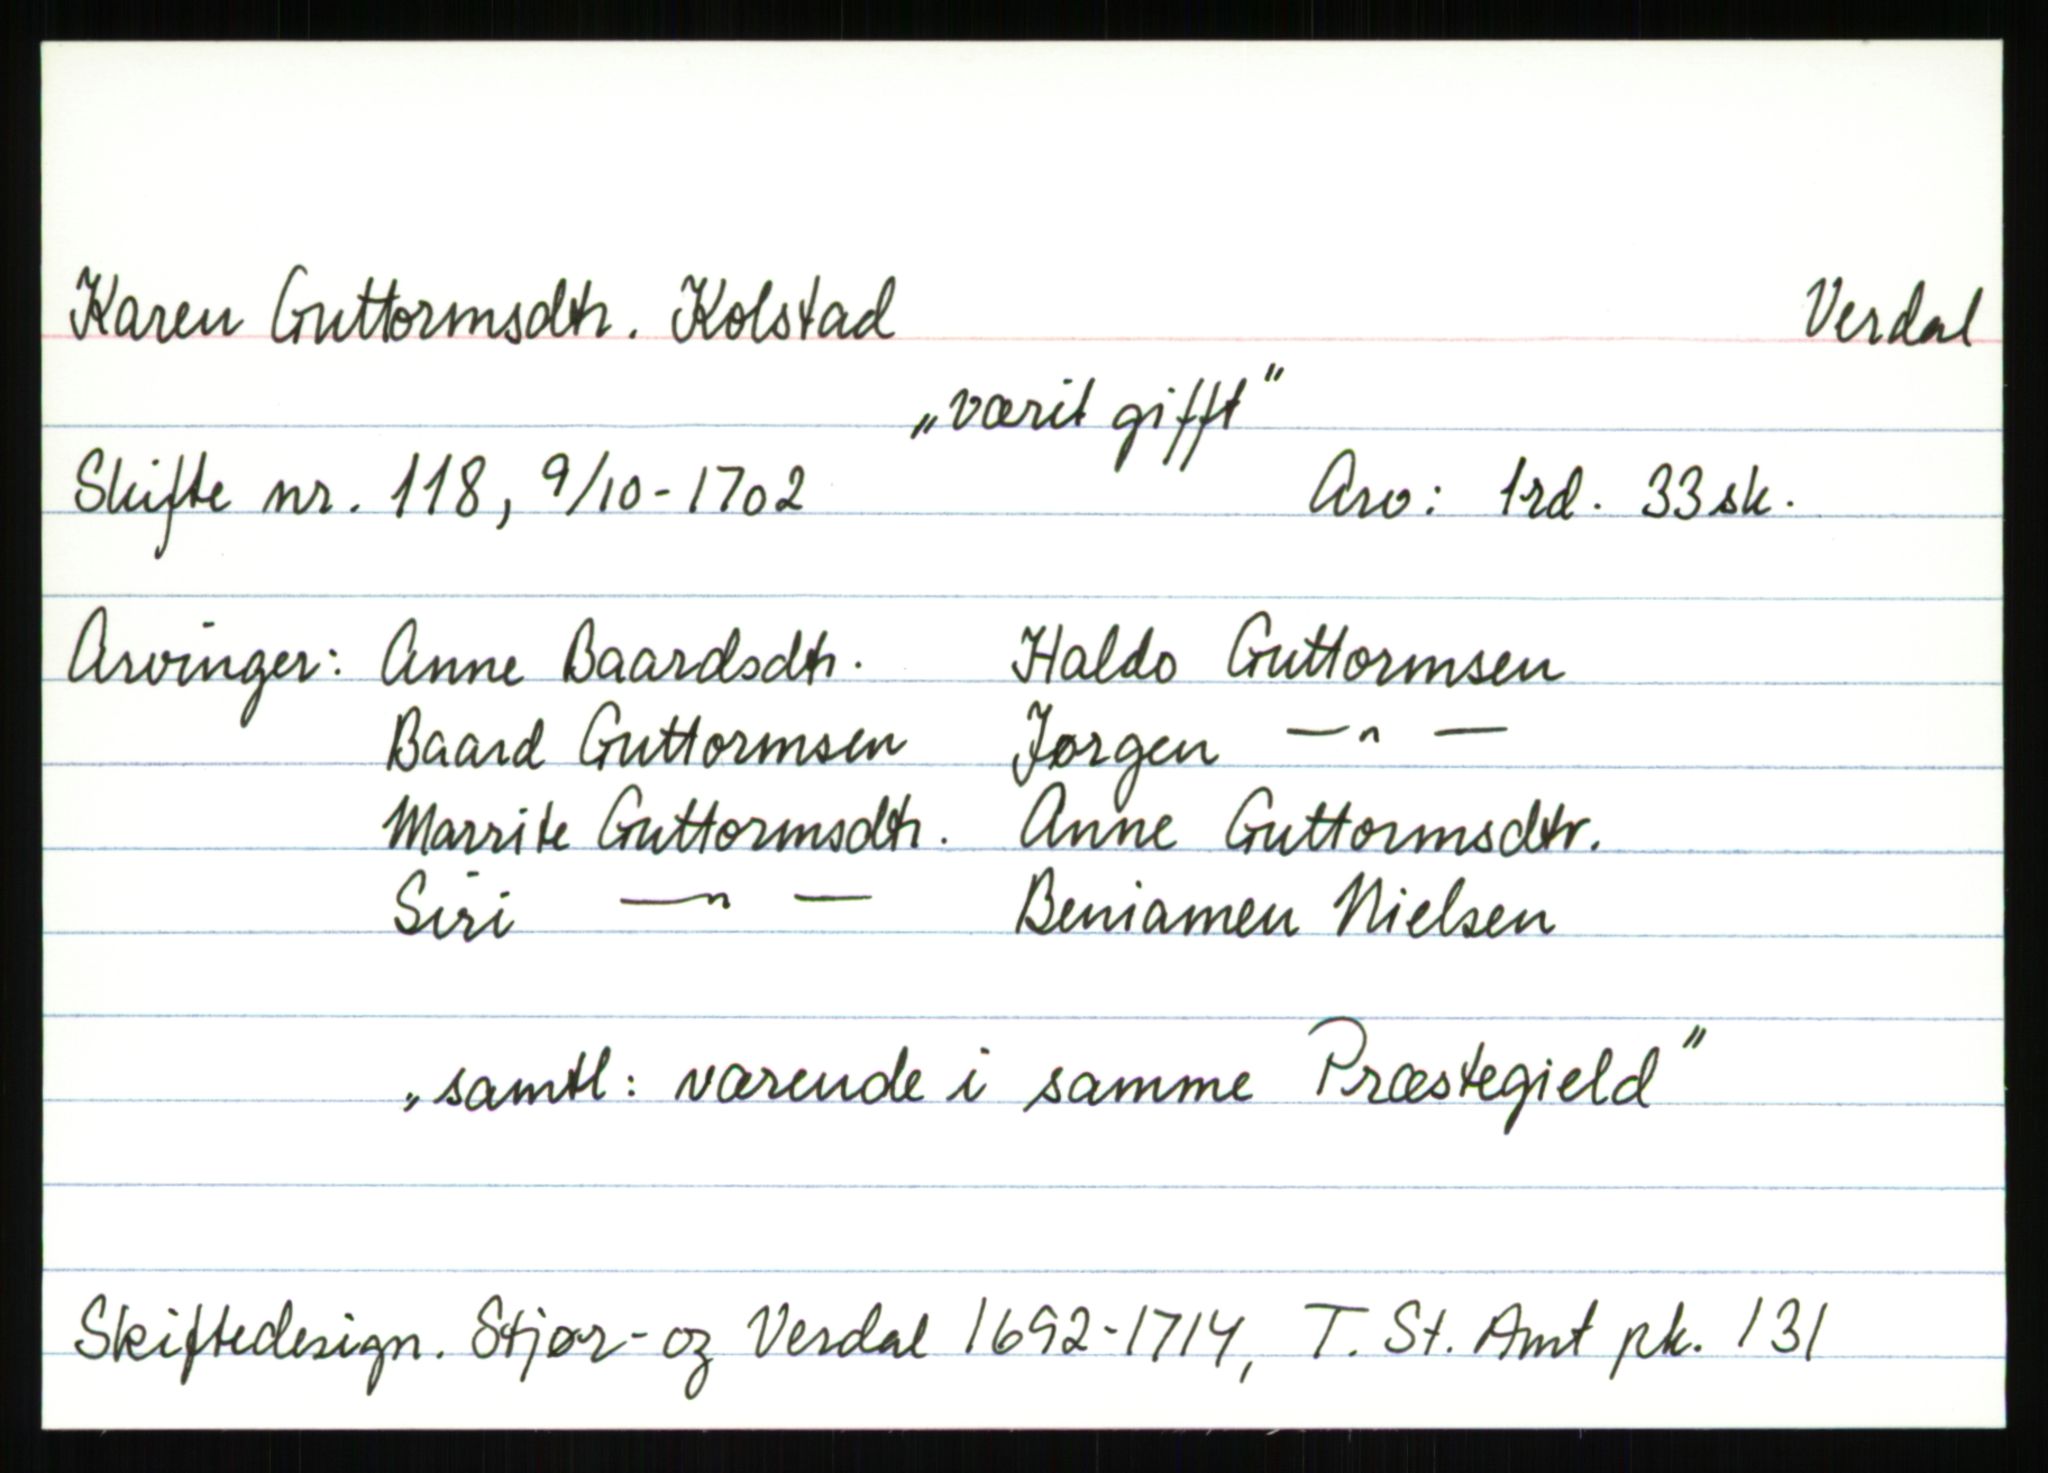 Karen Guttormsdtr. Kolstad Verdal
„værit gifft"
Skifte nr. 118, 9/10-1702 Arv: 1rd. 33 sk.
Arvinger: Anne Baardsdtr. Haldo Guttormsen
Baard Guttormsen Jørgen —"—
Marrite Guttormsdtr. Anne Guttormsdtr.
Siri —"— Beniamen Nielsen
„samtl: værende i samme Præstegield"
Skiftedesign. Stjør- og Verdal 1692-1714, T. St. Amt pk. 131